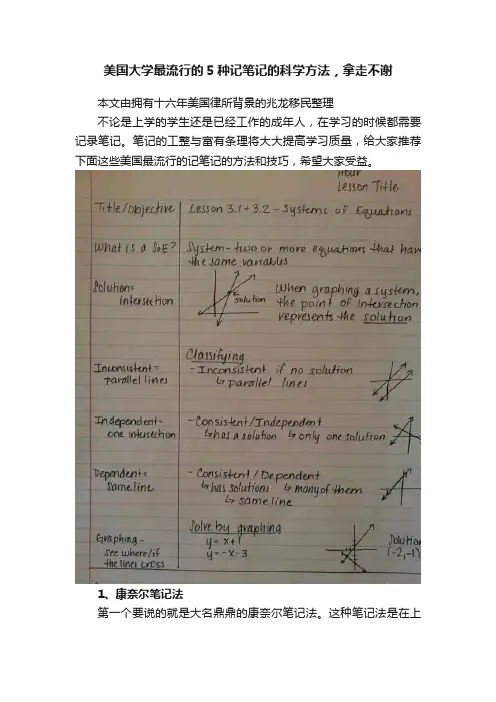 美国大学最流行的5种记笔记的科学方法，拿走不谢
本文由拥有十六年美国律所背景的兆龙移民整理
不论是上学的学生还是已经工作的成年人，在学习的时候都需要
记录笔记。笔记的工整与富有条理将大大提高学习质量，给大家推荐
下面这些美国最流行的记笔记的方法和技巧，希望大家受益。
Hour
Lesson Title
Title/objective
Lesson 3.1+3.2 - Systems of Equations
What is a SoE?
System - two or more equations that have
the same variables
Solution=
intersection
solution
When graphing a system,
the point of intersection
represents the solution
Classifying
Inconsistent =
parallel lines
- Inconsistent if no solution
↳ parallel lines
Independent=
one intersection
- Consistent/Independent
↳ has a solution ↳ only one solution
Dependent=
same line
- Consistent/Dependent
↳ has solutions ↳ many of them
↳ same line
Graphing -
see where/if
the lines cross
Solve by graphing
y = x+1
y = -x-3
Solution
(-2,-1)
1、康奈尔笔记法
第一个要说的就是大名鼎鼎的康奈尔笔记法。这种笔记法是在上